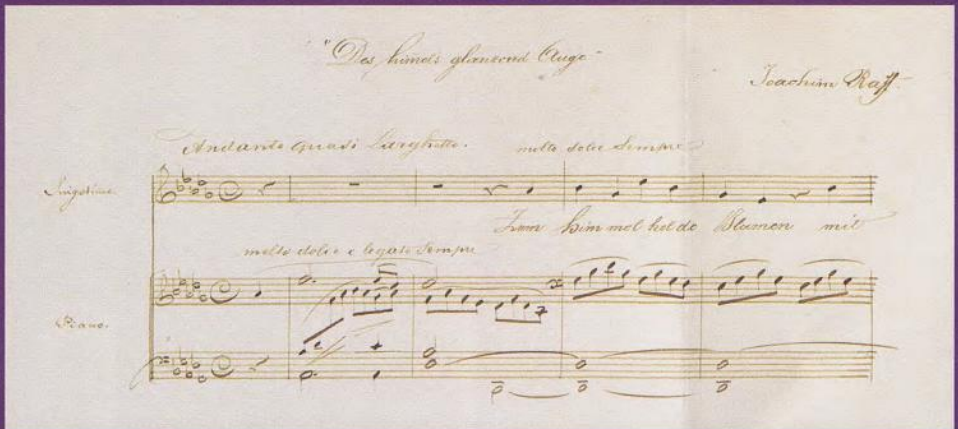 "Des Himels glänzend Auge"
Joachim Raff.
Andante quasi Larghetto. molto dolce sempre
Singstime.
Zum Him mel hol de Blumen mit
molto dolce e legato sempre
Piano.